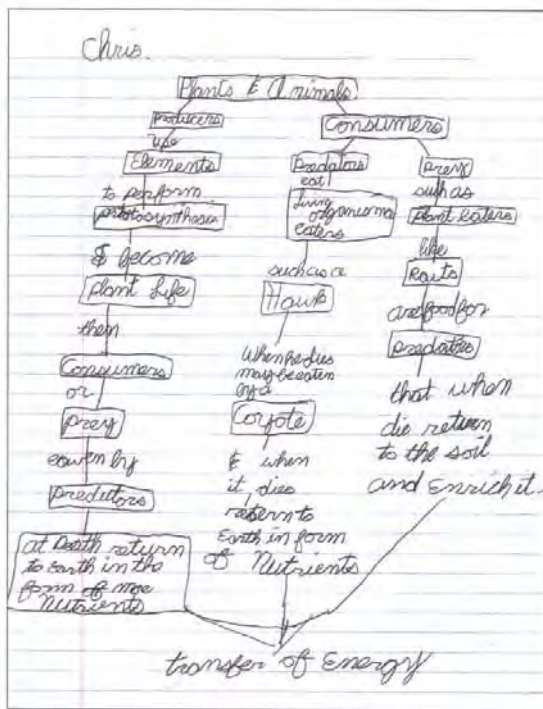 Chris.
Plants & Animals
Producers
use
Elements
to perform
photosynthesis
& become
Plant Life
then
Consumers
or
prey
eaven by
predutors
at Death return
to Earth in the
form of moe
Nutrients
Consumers
Predators
eat
living
organisms
eaters
such as a
Hawk
When he dies
may be eaten
by a
Coyote
& when
it, dies
retern to
Earth in form
of Nutrients
prey
such as
plant eaters
like
are food for
predators
that when
die return
to the soil
and Enrich it.
transfer of Energy